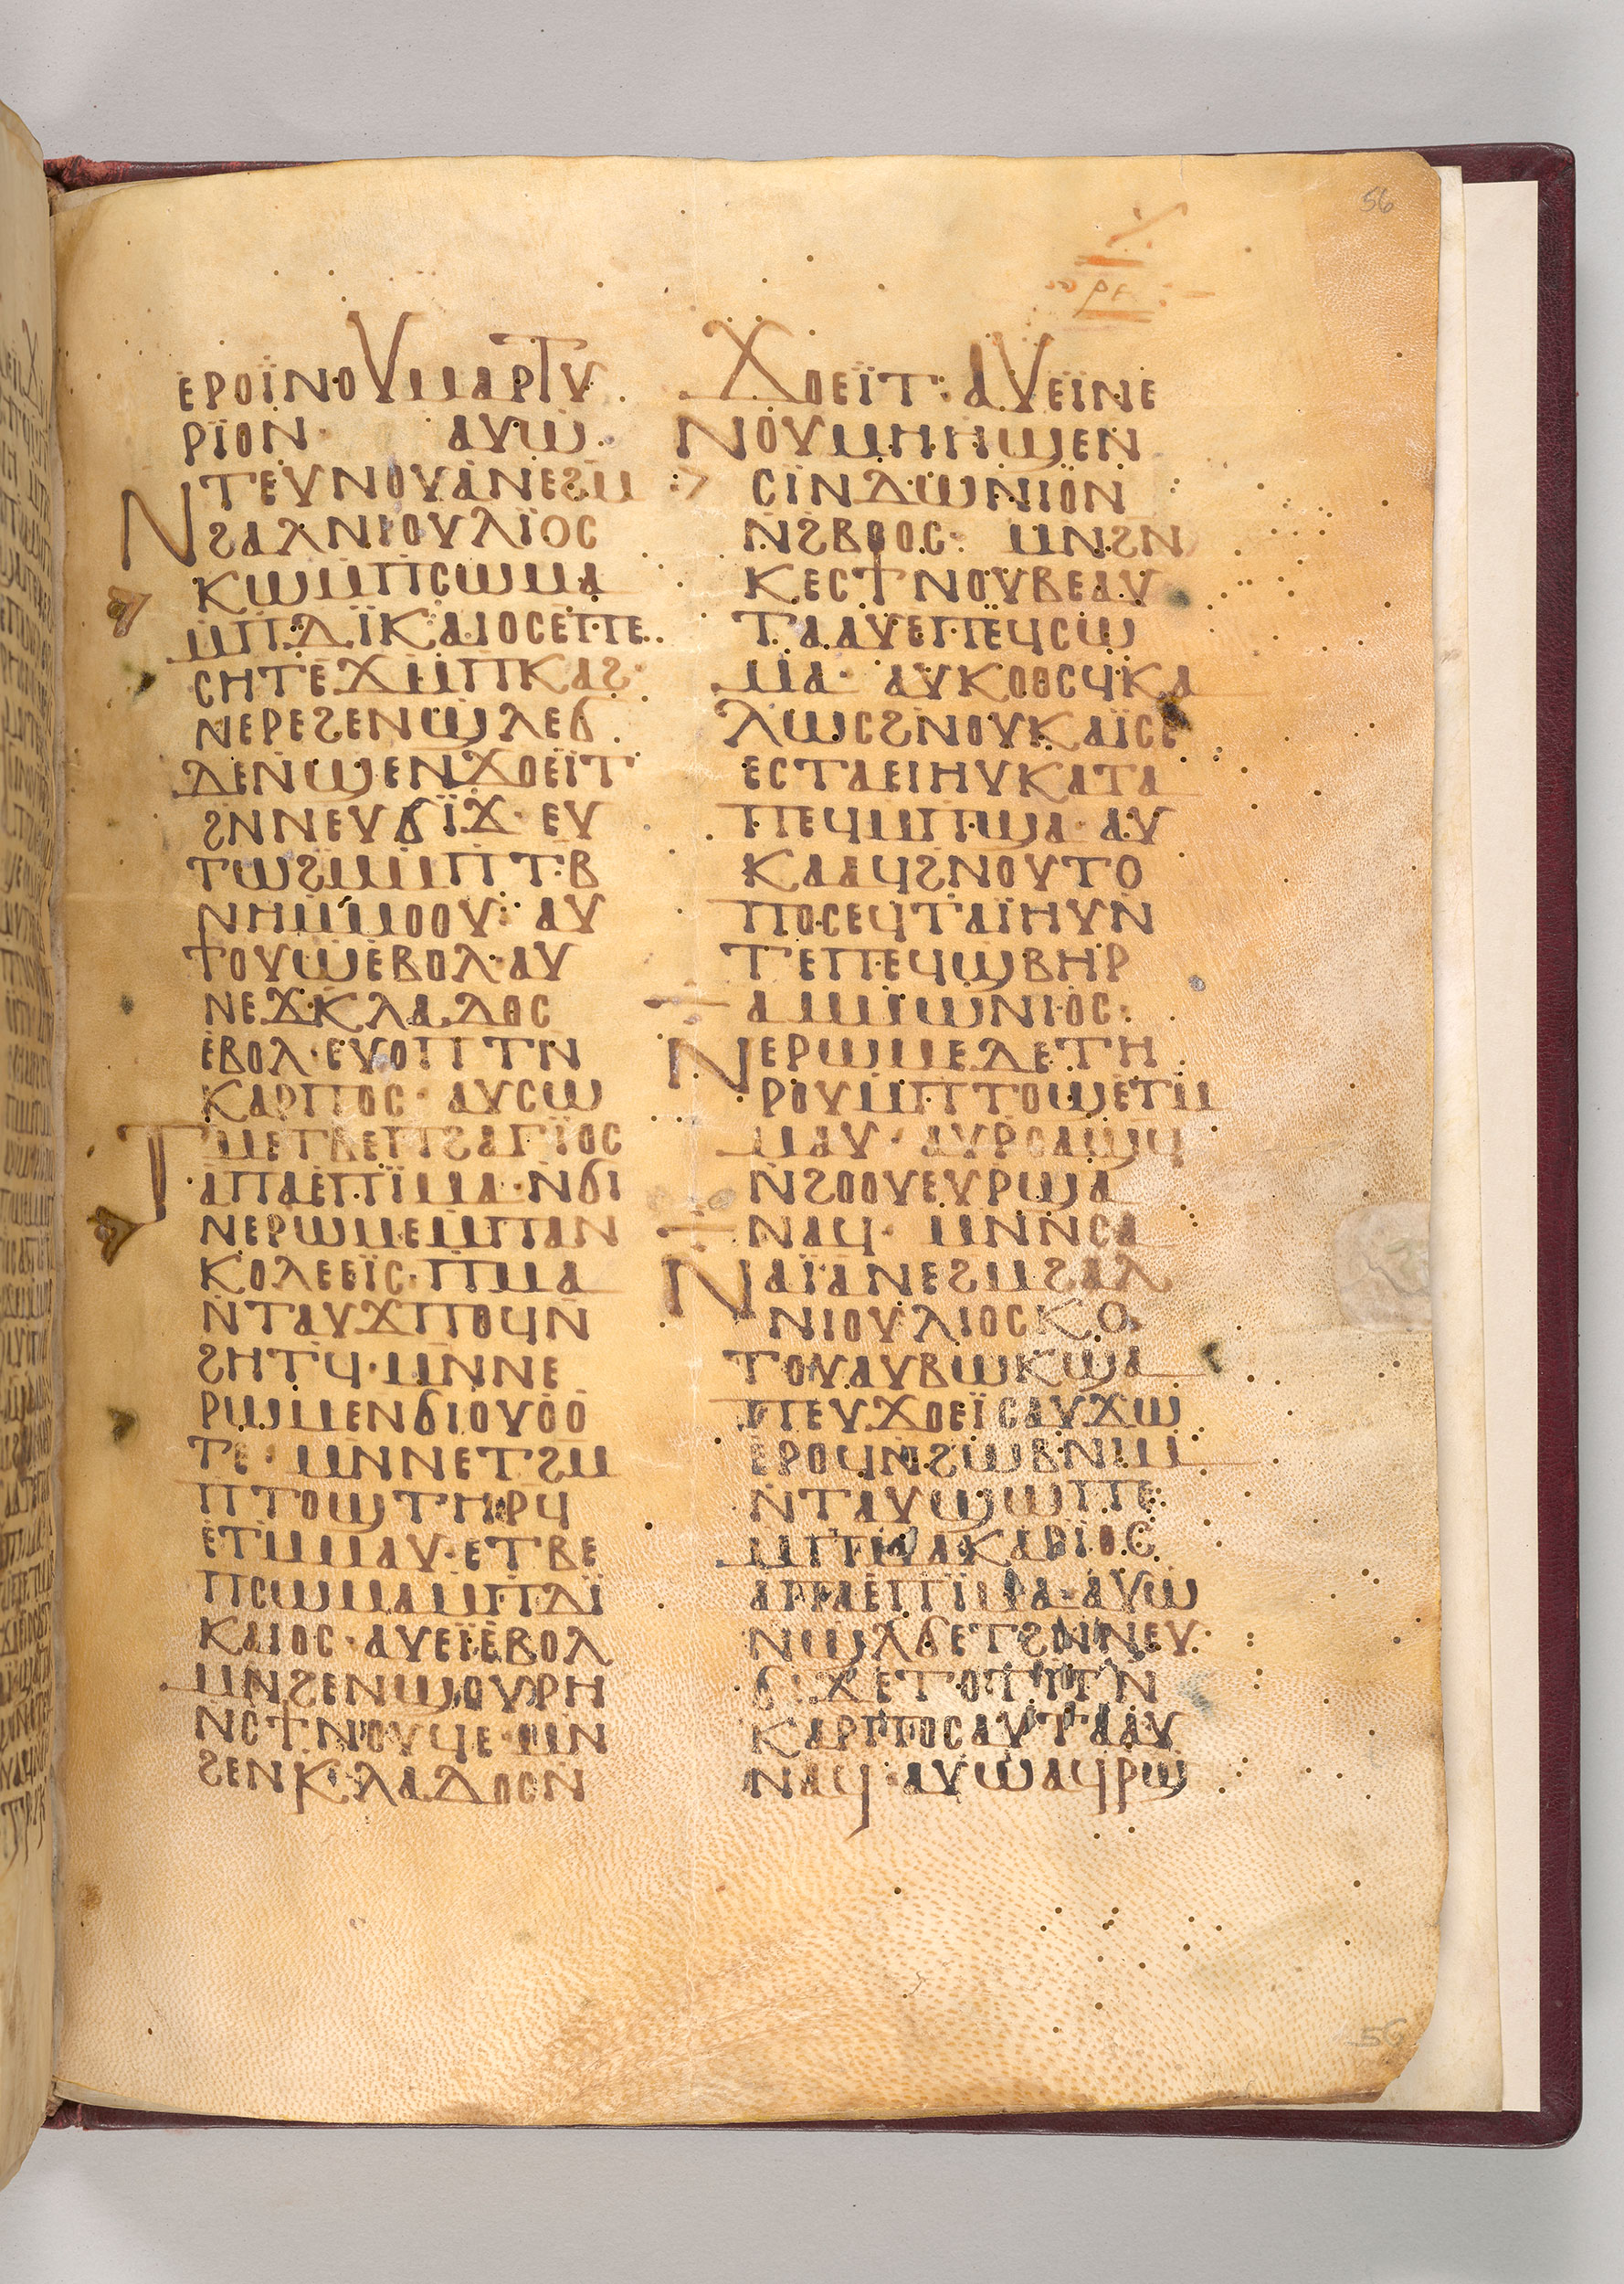 56
ⲣⲁ
ⲉⲣⲟⲓ̈ⲛⲟⲩⲙⲁⲣⲧⲩ
ⲣⲓ̈ⲟⲛ· ⲁⲩⲱ
ⲧⲉⲩⲛⲟⲩⲁⲛⲉϩⲙ
ⲛϩⲁⲗⲛⲓⲟⲩⲗⲓ̈ⲟⲥ
ⲕⲱⲙⲡⲥⲱⲙⲁ
ⲙⲡⲇⲓ̈ⲕⲁⲓⲟⲥⲉⲡⲉ
ⲥⲏⲧⲉϫⲙⲡⲕⲁϩ·
ⲛⲉⲣⲉϩⲉⲛϣⲗⲉϭ
ⲇⲉⲛϣⲉⲛϫⲟⲉⲓ̈ⲧ
ϩⲛⲛⲉⲩϭⲓ̈ϫ· ⲉⲩ
ⲧⲱϩⲙⲙⲡⲧⲃ
ⲛⲏⲙⲙⲟⲟⲩ: ⲁⲩ
ϯⲟⲩⲱⲉⲃⲟⲗ·ⲁⲩ
ⲛⲉϫⲕⲗⲁⲇⲟⲥ
ⲉⲃⲟⲗ·ⲉⲩⲟⲡⲧⲛ
ⲕⲁⲣⲡⲟⲥ· ⲁⲩⲥⲱ
ⲧⲙⲉⲧⲃⲉⲡϩⲁⲅⲓ̈ⲟⲥ
ⲁⲡⲁⲉⲡⲓ̈ⲙⲁ·ⲛϭⲓ
ⲛⲉⲣⲱⲙⲉⲙⲡⲁⲛ
ⲕⲟⲗⲉⲉⲓ̈ⲥ·ⲡⲙⲁ
ⲛⲧⲁⲩϫⲡⲟϥⲛ
ϩⲏⲧϥ·ⲙⲛⲛⲉ
ⲣⲱⲙⲉⲛϭⲓⲟⲩⲟⲟ
ⲧⲉ· ⲙⲛⲛⲉⲧϩⲙ
ⲡⲧⲟϣⲧⲏⲣϥ
ⲉⲧⲙⲙⲁⲩ·ⲉⲧⲃⲉ
ⲡⲥⲱⲙⲁⲙⲡⲇⲓ̈
ⲕⲁⲓⲟⲥ·ⲁⲩⲉⲓ̈ⲉⲃⲟⲗ
ⲙⲛϩⲉⲛϣⲟⲩⲣⲏ
ⲛⲥϯⲛⲟⲩϥⲉ·ⲙⲛ
ϩⲉⲛⲕⲗⲁⲇⲟⲥⲛ
ϫⲟⲉⲓ̈ⲧ:ⲁⲩⲉⲓ̈ⲛⲉ
ⲛⲟⲩⲙⲏⲏϣⲉⲛ
ⲥⲓⲛⲇⲱⲛⲓⲟⲛ
ⲛϩⲃⲟⲟⲥ· ⲙⲛϩⲛ
ⲕⲉⲥϯⲛⲟⲩⲃⲉⲁⲩ
ⲧⲁⲁⲩⲉⲡⲉϥⲥⲱ
ⲙⲁ· ⲁⲩⲕⲟⲟⲥϥⲕⲁ
ⲗⲱⲥϩⲛⲟⲩⲕⲁⲓ̈ⲥⲉ
ⲉⲥⲧⲁⲉⲓⲏⲩⲕⲁⲧⲁ
ⲡⲉϥⲙⲡϣⲁ·ⲁⲩ
ⲕⲁⲁϥϩⲛⲟⲩⲧⲟ
ⲡⲟⲥⲉϥⲧⲁⲓ̈ⲏⲩⲛ
ⲧⲉⲡⲉϥϣⲃⲏⲣ
ⲁⲙⲙⲱⲛⲓⲟⲥ·
ⲛⲉⲣⲱⲙⲉⲇⲉⲧⲏ
ⲣⲟⲩⲙⲡⲧⲟϣⲉⲧⲙ
ⲙⲁⲩ·ⲁⲩⲣⲥⲁϣϥ
ⲛϩⲟⲟⲩⲉⲩⲣϣⲁ
ⲛⲁϥ· ⲙⲛⲛⲥⲁ
ⲛⲁⲓ̈ⲁⲛⲉϩⲙϩⲁⲗ
ⲛⲓⲟⲩⲗⲓⲟⲥⲕⲟ
ⲧⲟⲩ·ⲁⲩⲃⲱⲕϣⲁ
ⲡⲉⲩϫⲟⲉⲓ̈ⲥⲁⲩϫⲱ
ⲉⲣⲟϥⲛϩⲱⲃⲛⲓⲙ
ⲛⲧⲁⲩϣⲱⲡⲉ
ⲙⲡⲙⲁⲕⲁⲣⲓ̈ⲟⲥ
ⲁⲡⲁⲉⲡⲓ̈ⲙⲁ·ⲁⲩⲱ
ⲛϣⲗϭⲉⲧϩⲛⲛⲉⲩ
ϭⲓϫⲉⲧⲟⲧⲡⲛ
ⲕⲁⲣⲡⲟⲥⲁⲩⲧⲁⲁⲩ
ⲛⲁϥ·ⲁⲩⲱⲁϥⲣϣ
56